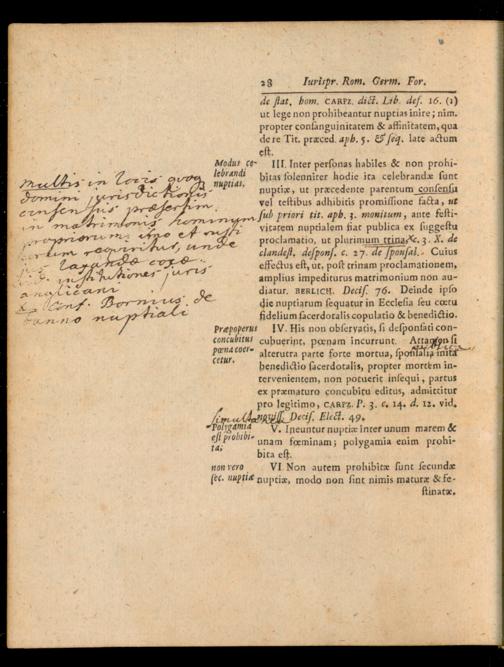 28 Iurispr. Rom. Germ. For.
de stat. hom. CARPZ. dict. Lib. def. 16. (2)
ut lege non prohibeantur nuptias inire; nim.
propter consanguinitatem & affinitatem, qua
de re Tit. præced. aph. 5. & seq. late actum
est.
Modus ce-
lebrandi
nuptias.
III. Inter personas habiles & non prohi-
bitas solenniter hodie ita celebrandæ sunt
nuptiæ, ut præcedente parentum consensu
vel testibus adhibitis promissione facta, ut
sub priori tit. aph. 3. monitum, ante festi-
vitatem nuptialem fiat publica ex suggestu
proclamatio, ut plurimum trina, c. 3. X. de
clandest. despons. c. 27. de sponsal. Cuius
effectus est, ut, post trinam proclamationem,
amplius impediturus matrimonium non au-
diatur. BERLICH. Decis. 76. Deinde ipso
die nuptiarum sequatur in Ecclesia seu cœtu
fidelium sacerdotalis copulatio & benedictio.
multis in locis quoq
domini jurisdictionis
consensus præsertim
in matrimoniis hominum
propriorum imo et rusti
corum requiritur, unde
institutiones juris
anglicani
& conf. Bornius de
banno nuptiali
Præproperus
concubitus
pœna coer-
cetur.
IV. His non observatis, si desponsati con-
cubuerint, pœnam incurrunt. Attamen si
alterutra parte forte mortua, sponsalia inita
benedictio sacerdotalis, propter mortem in-
tervenientem, non potuerit insequi, partus
ex præmaturo concubitu editus, admittitur
pro legitimo, CARPZ. P. 3. c. 14. d. 12. vid.
noviss. Decis. Elect. 49.
Polygamia
est prohibi-
ta;
V. Ineuntur nuptiæ inter unum marem &
unam fœminam; polygamia enim prohi-
bita est.
non vero
sec. nuptiæ
VI. Non autem prohibitæ sunt secundæ
nuptiæ, modo non sint nimis maturæ & fe-
stinatæ.